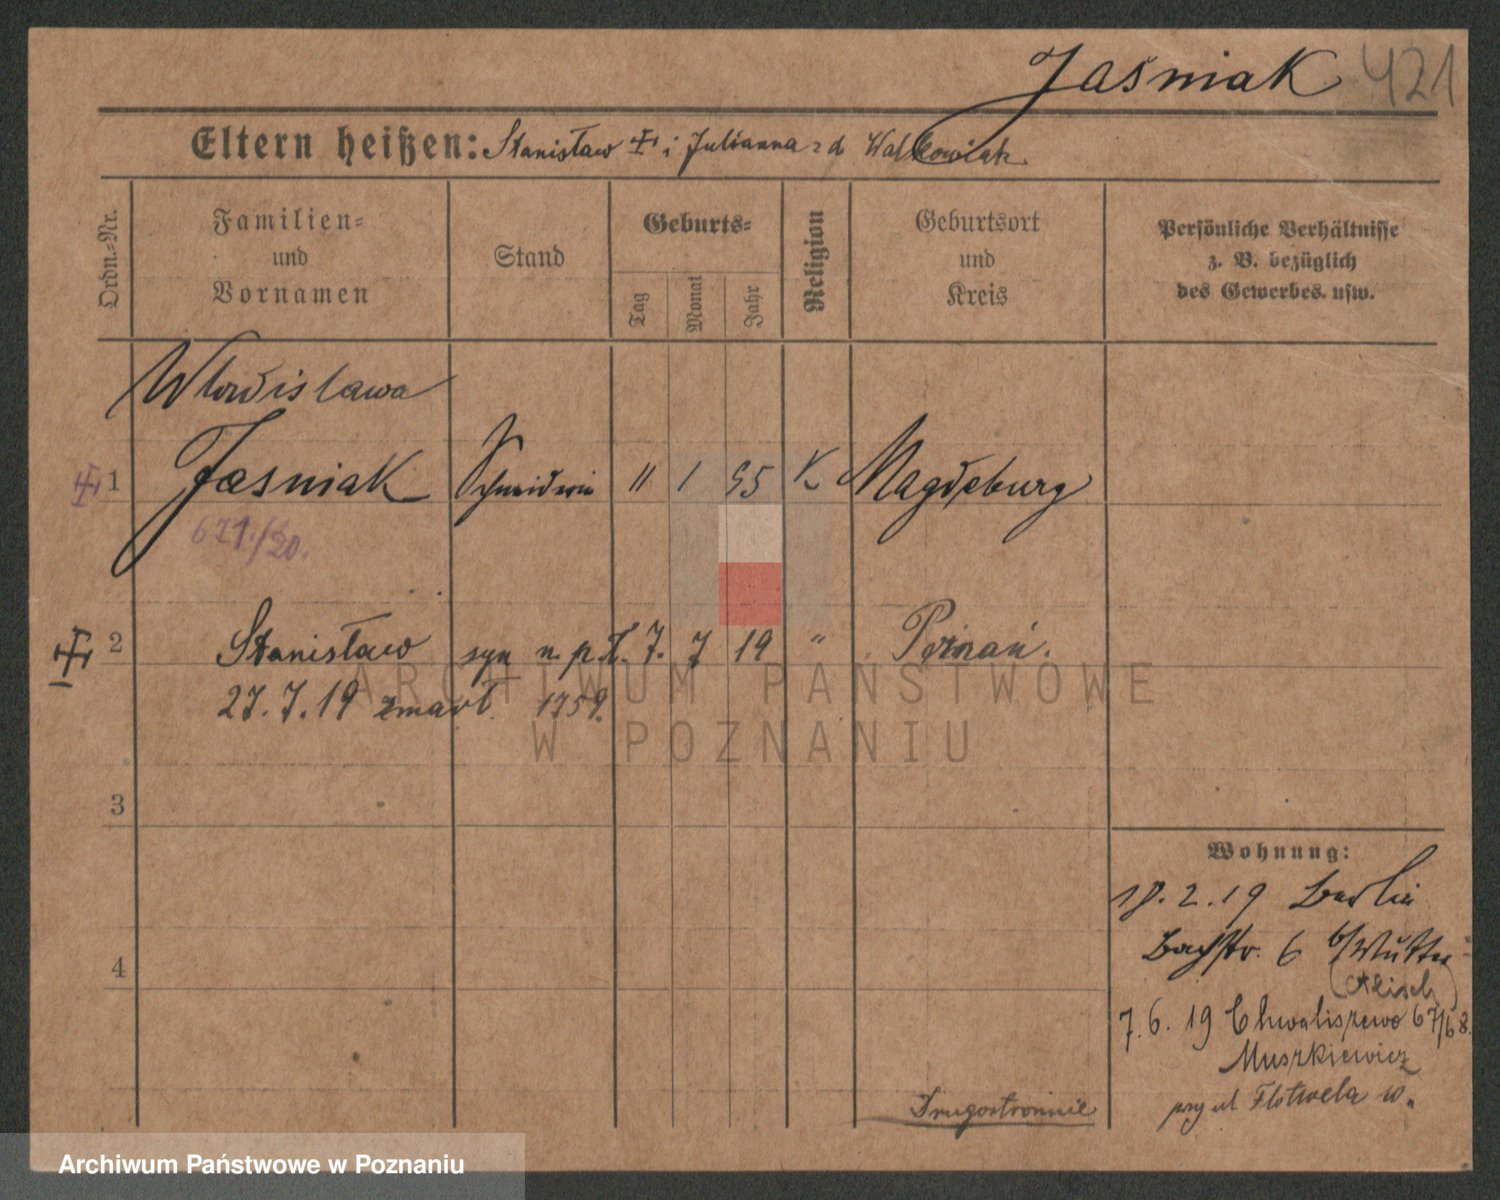 Jaśniak 421
Eltern heißen: Stanisław ‡ i Julianna z d Walkowiak
Ordn.-Nr.
Familien- und Vornamen
Stand
Geburts-
Tag
Monat
Jahr
Religion
Geburtsort und Kreis
Persönliche Verhältnisse
z. B. bezüglich
des Gewerbes usw.
Wlodislawa
1 Jasniak Schneiderin 11 1 95 K Magdeburg
671./20.
2 Stanisław syn n. p. Ż. 7. 7 19 " Poznań.
27.7.19 zmarł. 1759.
ARCHIWUM PAŃSTWOWE
W POZNANIU
3
4
Wohnung:
18. 2. 19 Berlin
Bachstr. 6 b/Wutke
7. 6. 19 Chwaliszewo 67/68.
Muszkiewicz
przy ul Flotwela
Drugostronnie
Archiwum Państwowe w Poznaniu